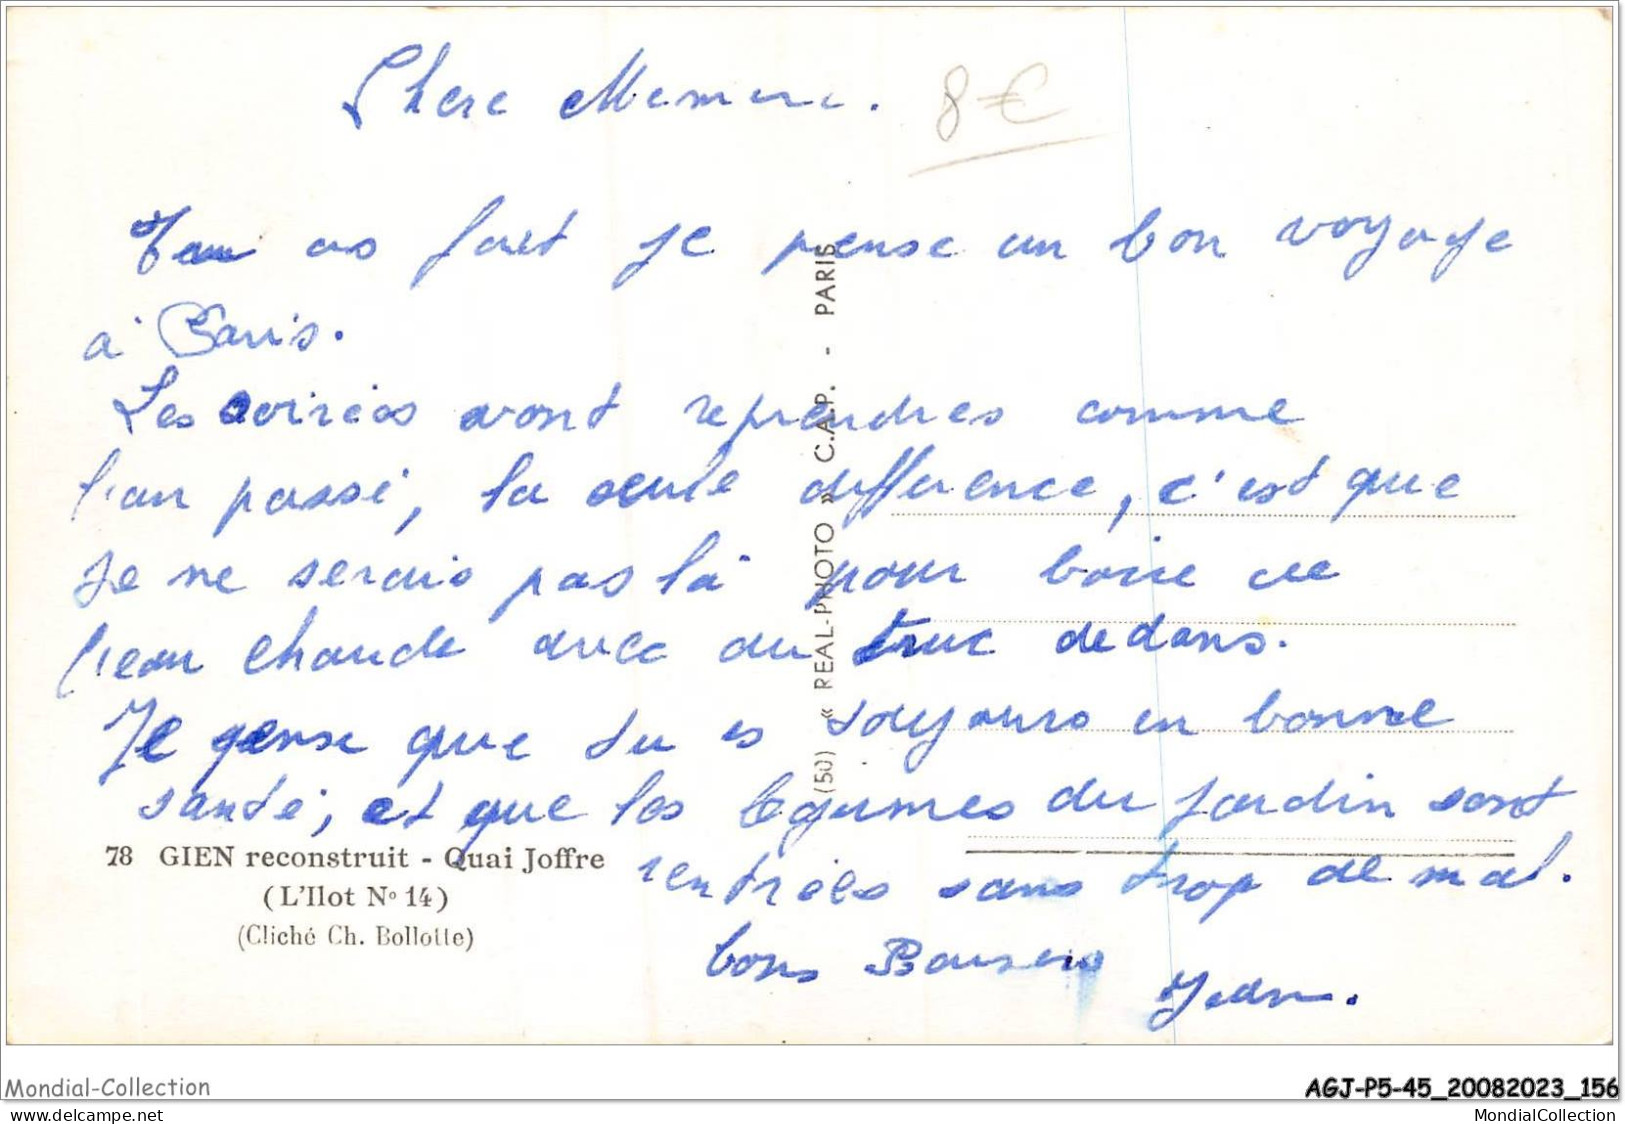 Chere Memere.
8€
Tu as fait je pense un bon voyage
à Paris.
Les soirées vont reprendres comme
l'an passé, la seule difference, c'est que
je ne serais pas là pour boire de
l'eau chaude avec du truc dedans.
Je pense que tu es toujours en bonne
santé, et que les legumes du jardin sont
rentrées sans trop de mal.
bons Baisers
Jean.
(50) « REAL-PHOTO » C.A.P. - PARIS
78 GIEN reconstruit - Quai Joffre
(L'Ilot No 14)
(Cliché Ch. Bollotte)
Mondial-Collection
AGJ-P5-45_20082023_156
www.delcampe.net
MondialCollection